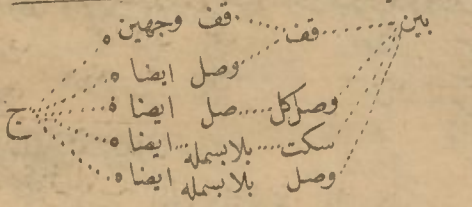 بين قف قف وجهين
وصل ايضا
وصل كل صل ايضا ج
سكت بلا بسمله ايضا
وصل بلا بسمله ايضا